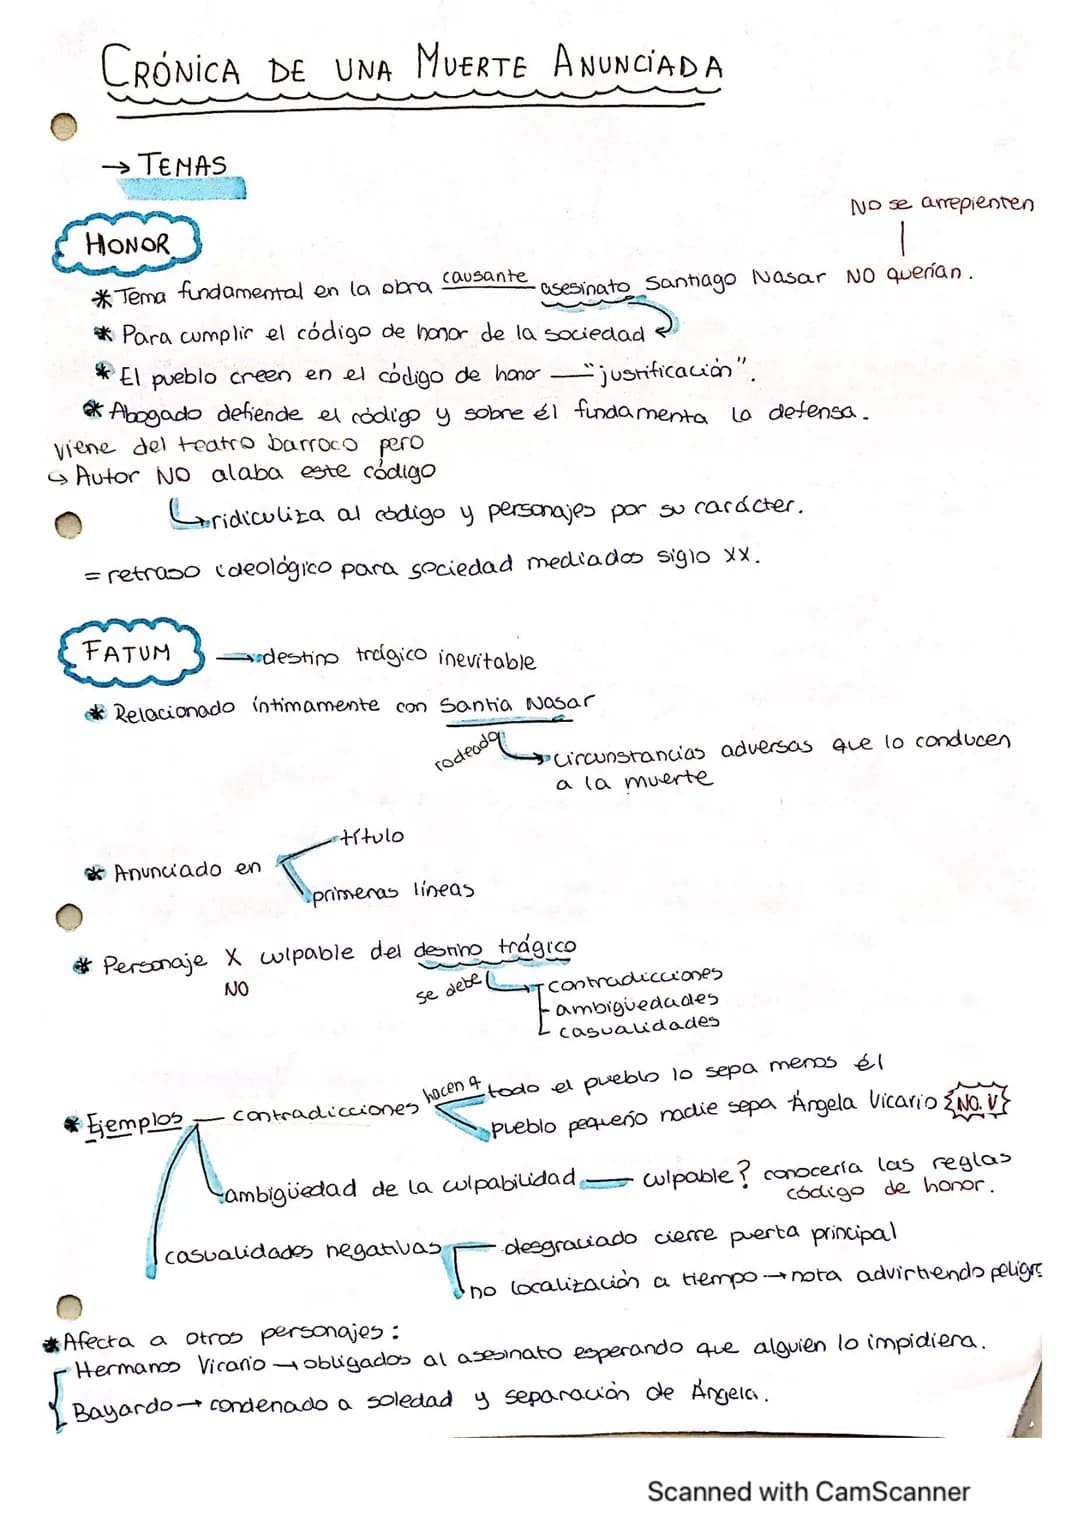 CRÓNICA DE UNA MUERTE ANUNCIADA
→ TEMAS
NO se arrepienten
HONOR
* Tema fundamental en la obra causante asesinato Santiago Nasar NO querían.
* Para cumplir el código de honor de la sociedad
* El pueblo creen en el código de honor — "justificación".
* Abogado defiende el código y sobre él fundamenta la defensa.
viene del teatro barroco pero
↳ Autor NO alaba este código
↳ ridiculiza al código y personajes por su carácter.
= retraso ideológico para sociedad mediados siglo XX.
FATUM → destino trágico inevitable
* Relacionado íntimamente con Santia Nasar
rodeado → circunstancias adversas que lo conducen
a la muerte
título
* Anunciado en
primeras líneas
* Personaje X culpable del destino trágico
NO
se debe → contradicciones
- ambigüedades
casualidades
* Ejemplos — contradicciones hacen q todo el pueblo lo sepa menos él
pueblo pequeño nadie sepa Ángela Vicario NO.V
ambigüedad de la culpabilidad — culpable? conocería las reglas
código de honor.
casualidades negativas — desgraciado cierre puerta principal
no localización a tiempo → nota advirtiendo peligro
* Afecta a otros personajes:
Hermanos Vicario → obligados al asesinato esperando que alguien lo impidiera.
Bayardo → condenado a soledad y separación de Ángela.
Scanned with CamScanner